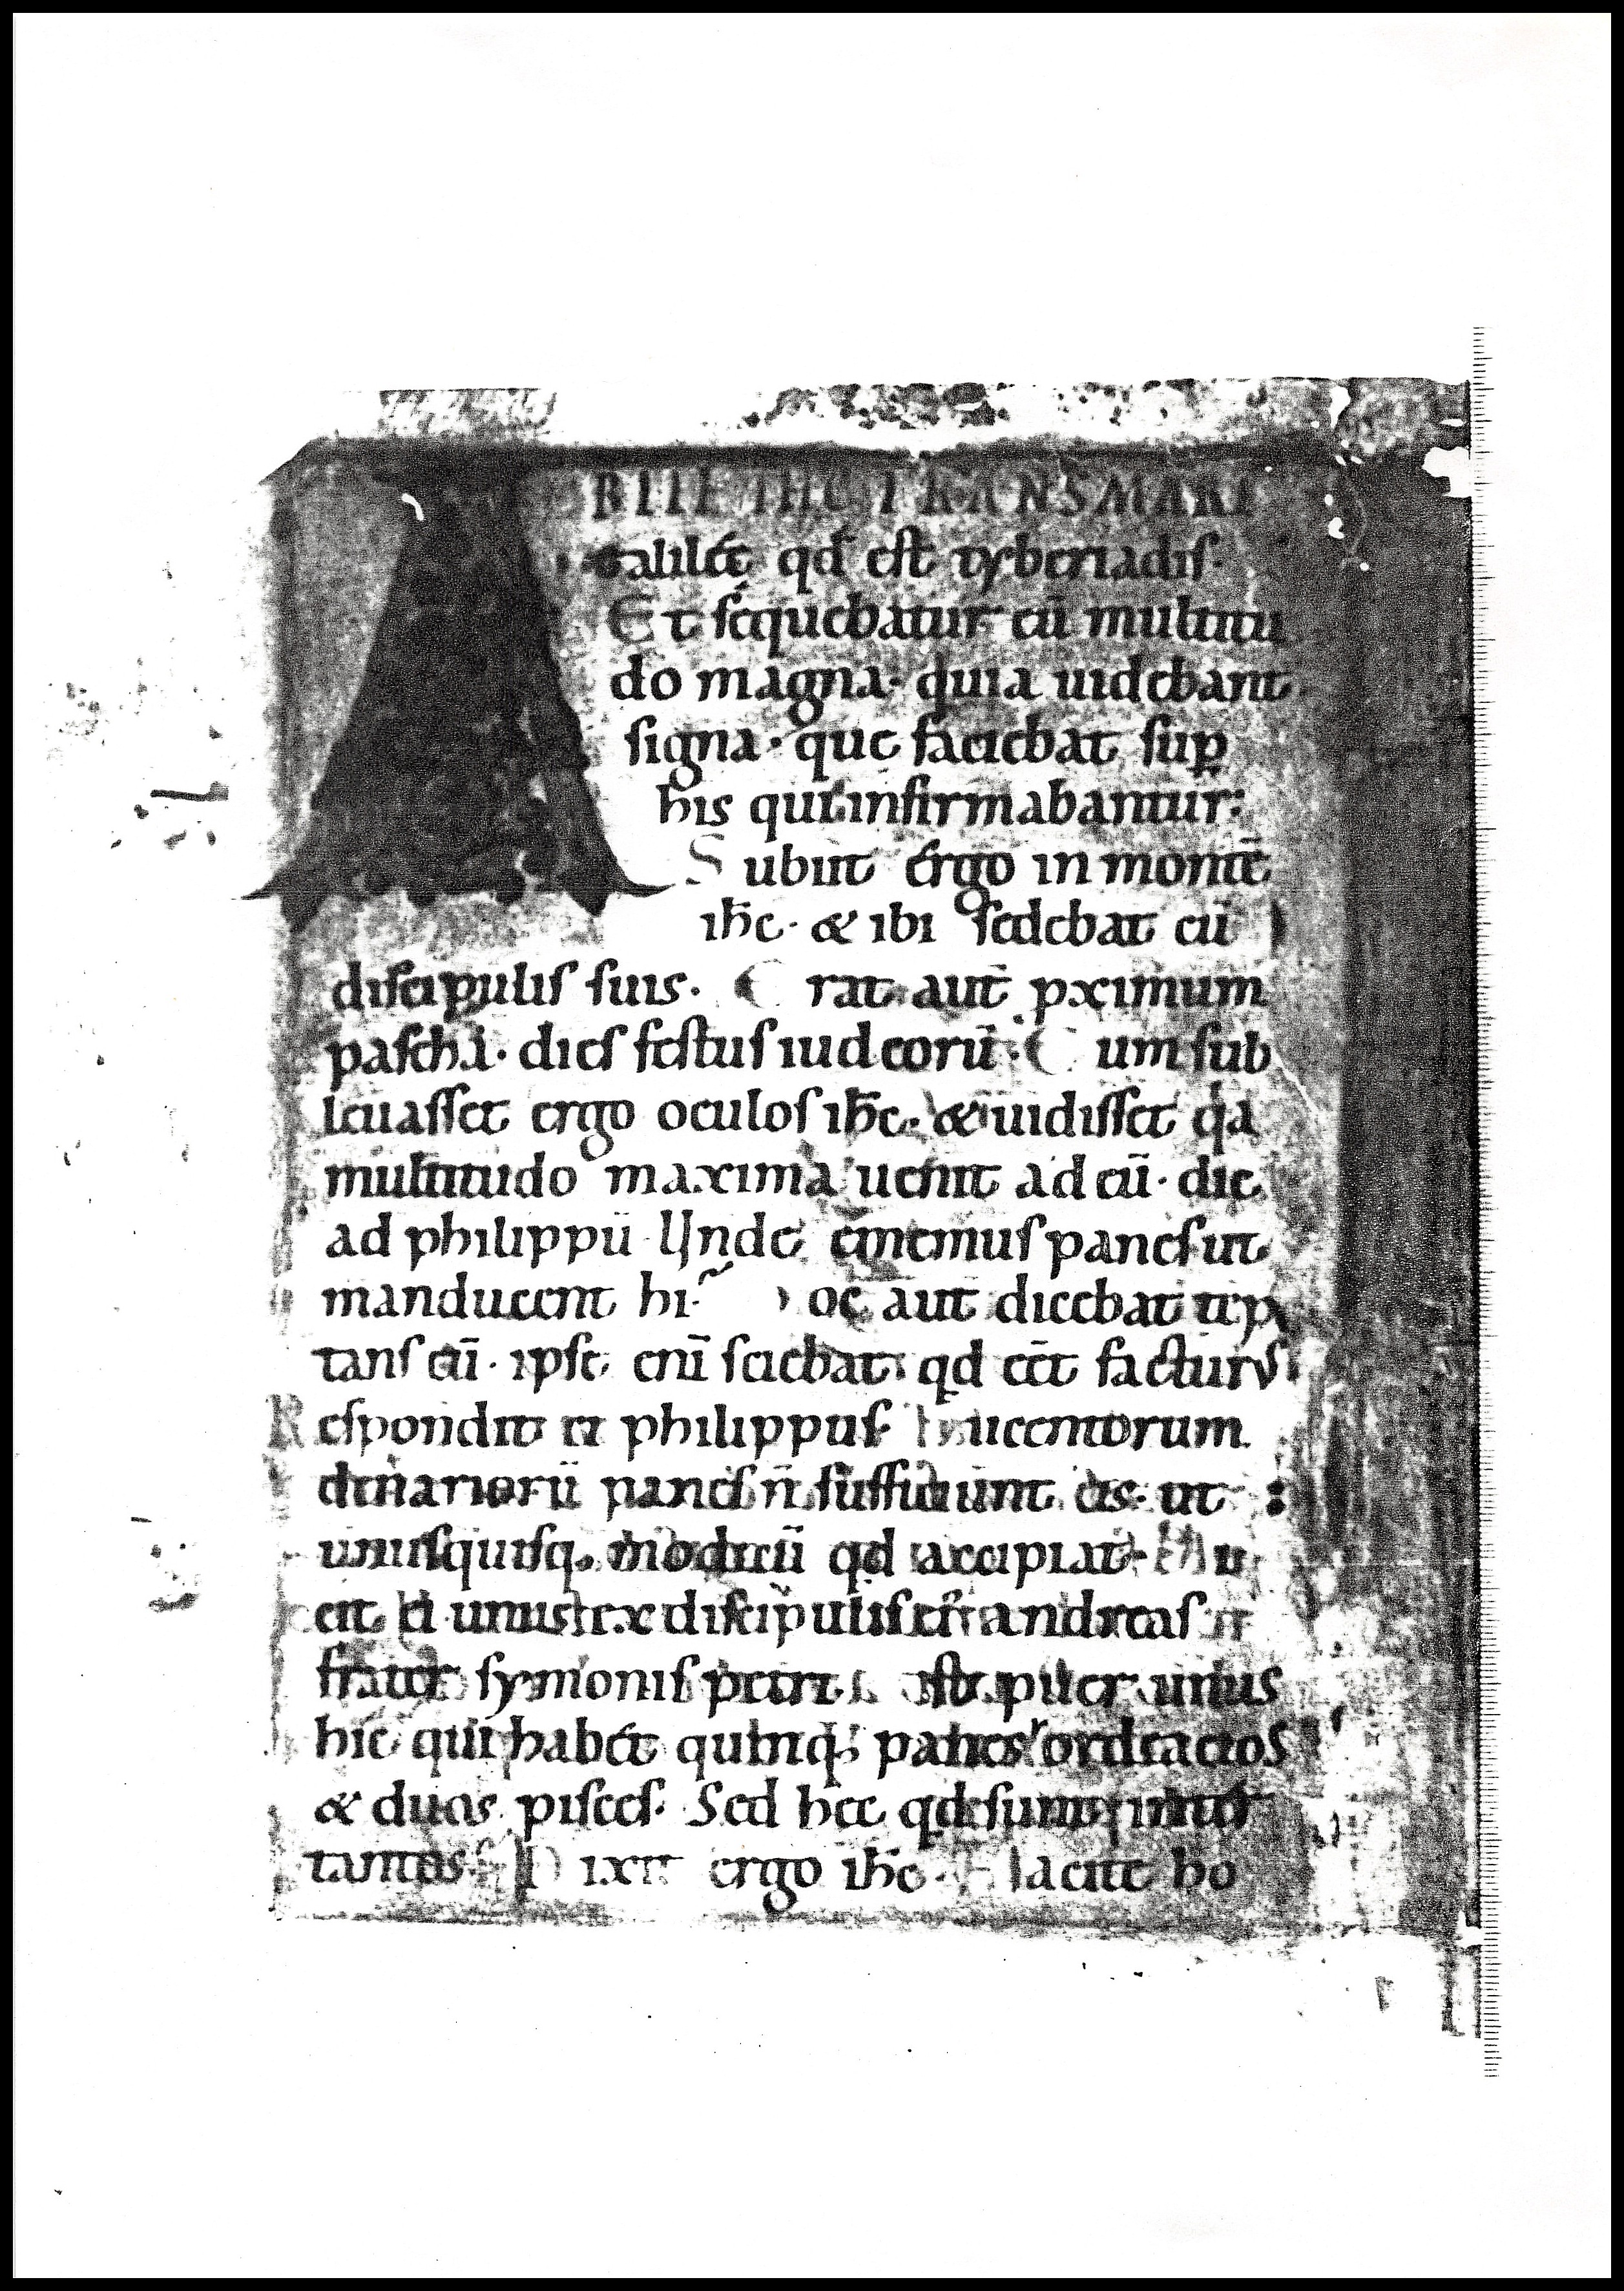 A BIIT IHC TRANS MARE
galileę qd̄ est tyberiadis·
Et sequebatur eū multitu
do magna· quia uidebant
signa· que faciebat sup̄
his qui infirmabantur:
Subiit ergo in montē
ih̄c· & ibi sedebat cū
discipulis suis. Erat aut̄ pximum
pascha· dies festus iudeorū· Cum sub
leuasset ergo oculos ih̄c· & uidisset qa
multitudo maxima uenit ad eū· dic
ad philippū Unde ememus panes ut
manducent hi· oc aut̄ dicebat tēp
tans eū· ipse enī sciebat qd eēt facturus
Respondit ei philippus· ucentorum
denariorū panes n̄ sufficiunt eis· ut
unusquisq· modicū qd accipiat·
cit ei unus ex discipulis ei andreas
frater symonis petri· est puer unus
hic qui habet quinq; panes ordeacios
& duos pisces. Sed hec qd sunt inter
tantos· Dixit ergo ih̄c· Facite ho